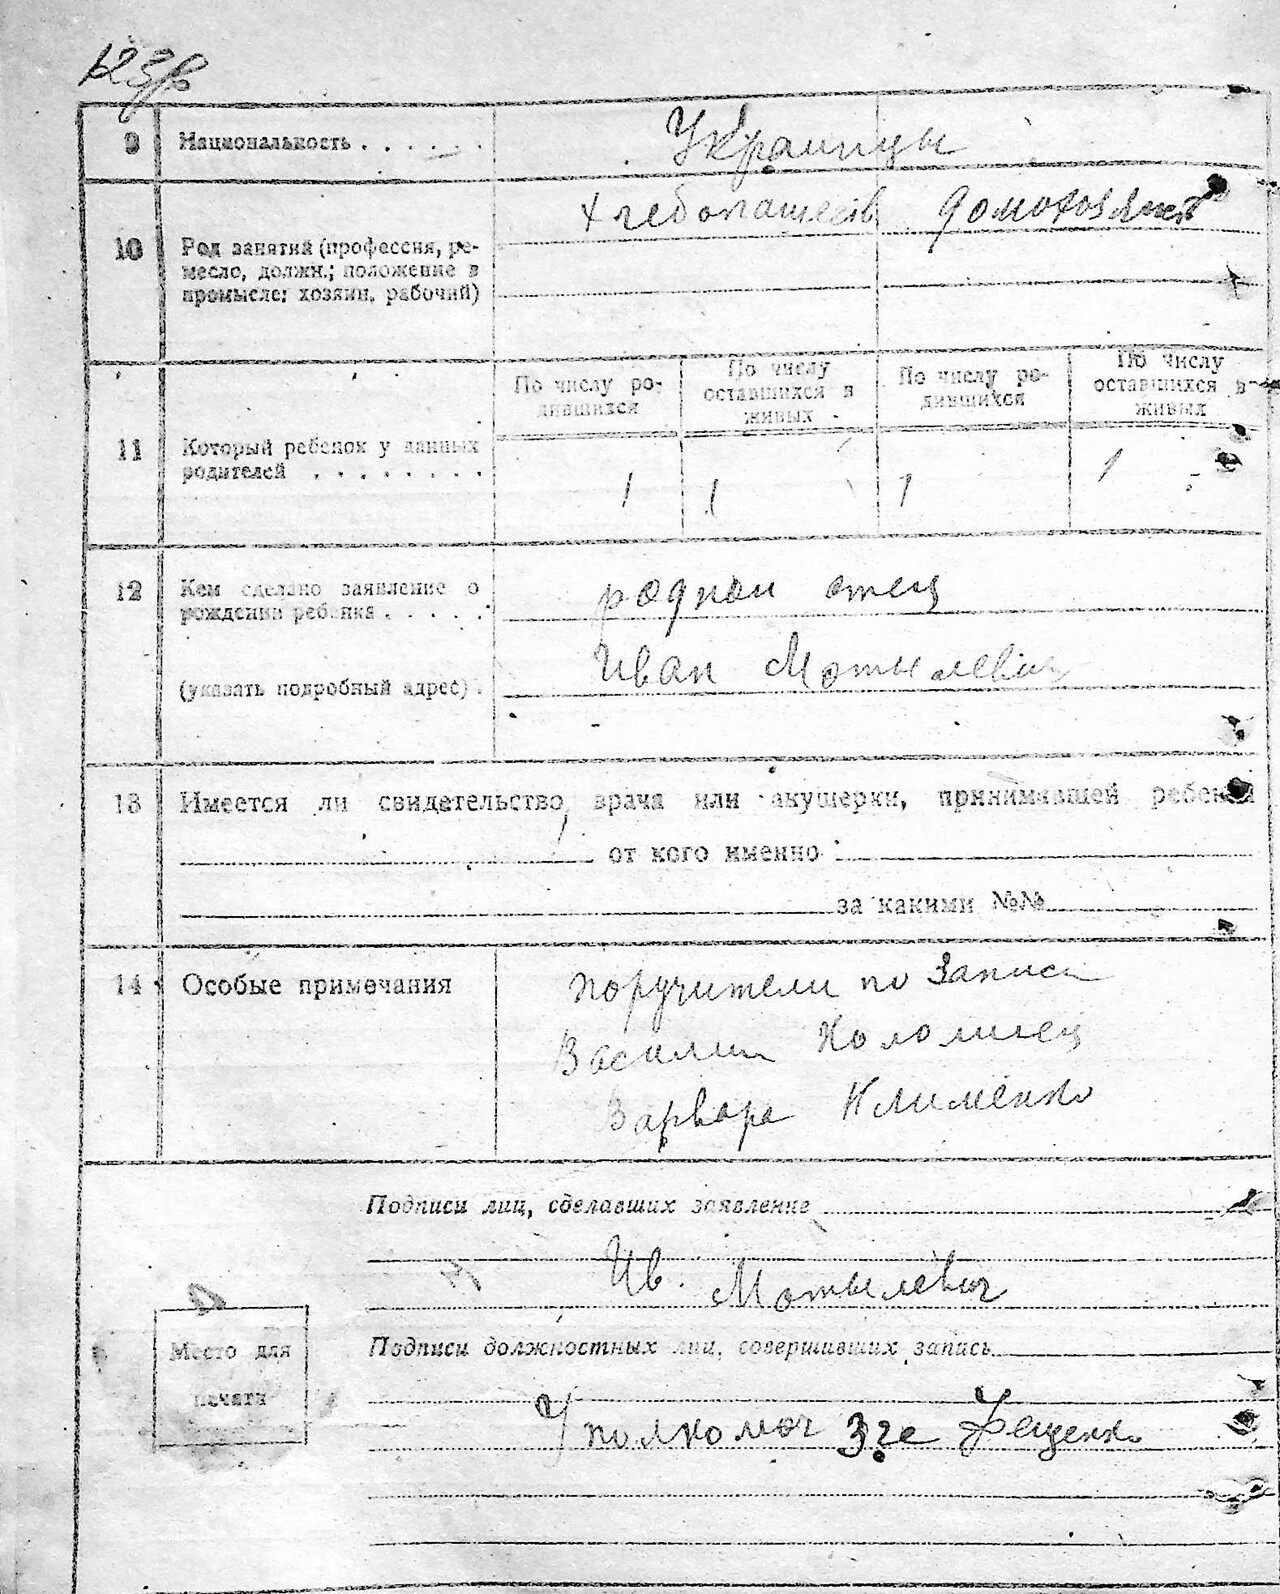 9 Национальность . . . . . . Украинцы
хлебопашеств домохозяйст
10 Род занятий (профессия, ре-
месло, должн.; положение в
промысле: хозяин, рабочий)
По числу ро-
дившихся
По числу
оставшихся в
живых
По числу ро-
дившихся
По числу
оставшихся в
живых
11 Который ребенок у данных
родителей . . . . . . . .
1 1 1 1
12 Кем сделано заявление о
рождении ребенка . . . . .
родной отец
Иван Мотылевич
(указать подробный адрес) .
13 Имеется ли свидетельство врача или акушерки, принимавшей ребенка
от кого именно
за какими №№
14 Особые примечания
поручители по записи
Василий Коломиец
Варвара Клименко
Подписи лиц, сделавших заявление
Ив. Мотылевич
Место для
печати
Подписи должностных лиц, совершивших запись
Уполкомоч Фещенко